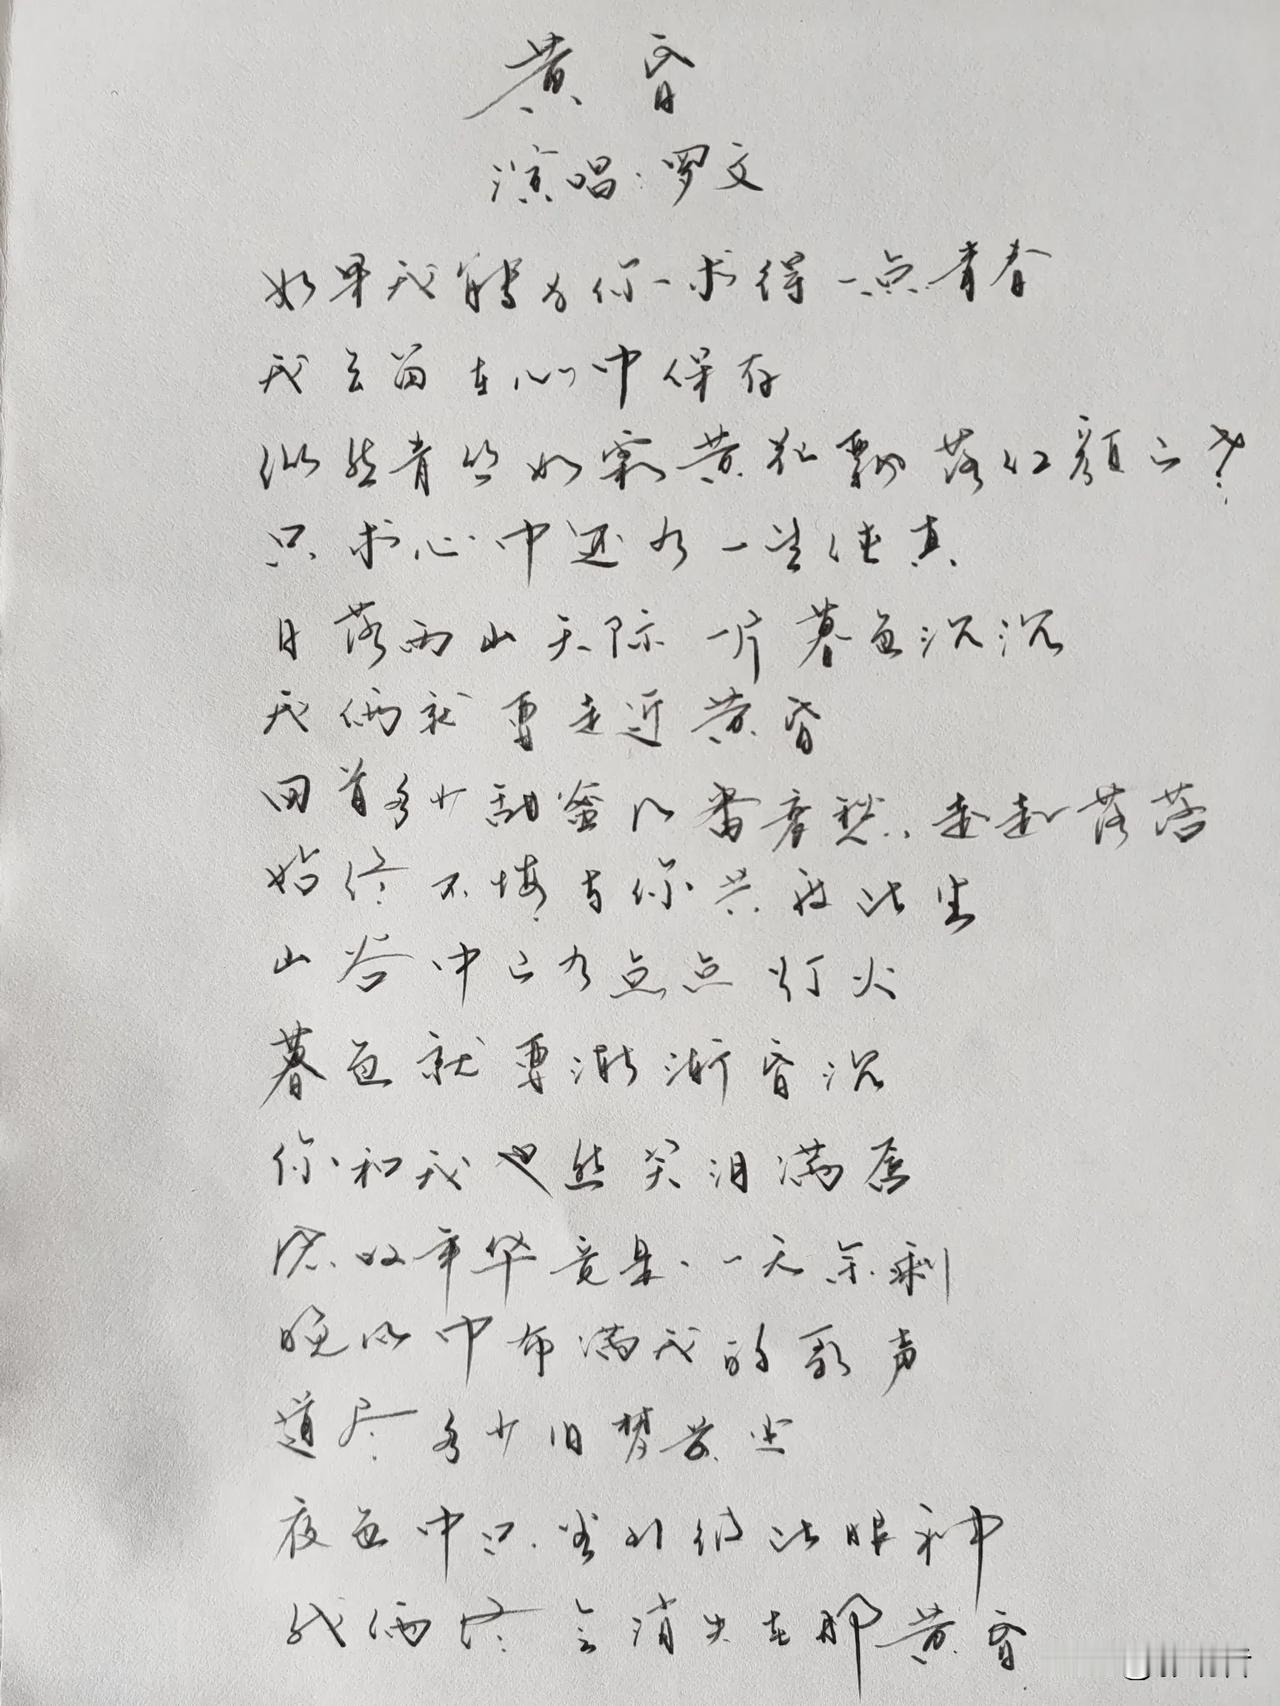 黄昏
演唱:罗文
如果我能为你求得一点青春
我会留在心中保存
纵然青丝如霜黄花飘落红颜已老
只求心中还有一些纯真
日落西山天际一片暮色沉沉
我俩就要走近黄昏
回首多少甜蜜几番哀愁起起落落
始终不悔与你共度此生
山谷中已有点点灯火
暮色就要渐渐昏沉
你和我也然笑泪满唇
为欢年华竟是一天余剩
晚风中布满我的歌声
道尽多少旧梦黄尘
夜色中只觉彼此眼神
我俩终会消失在那黄昏